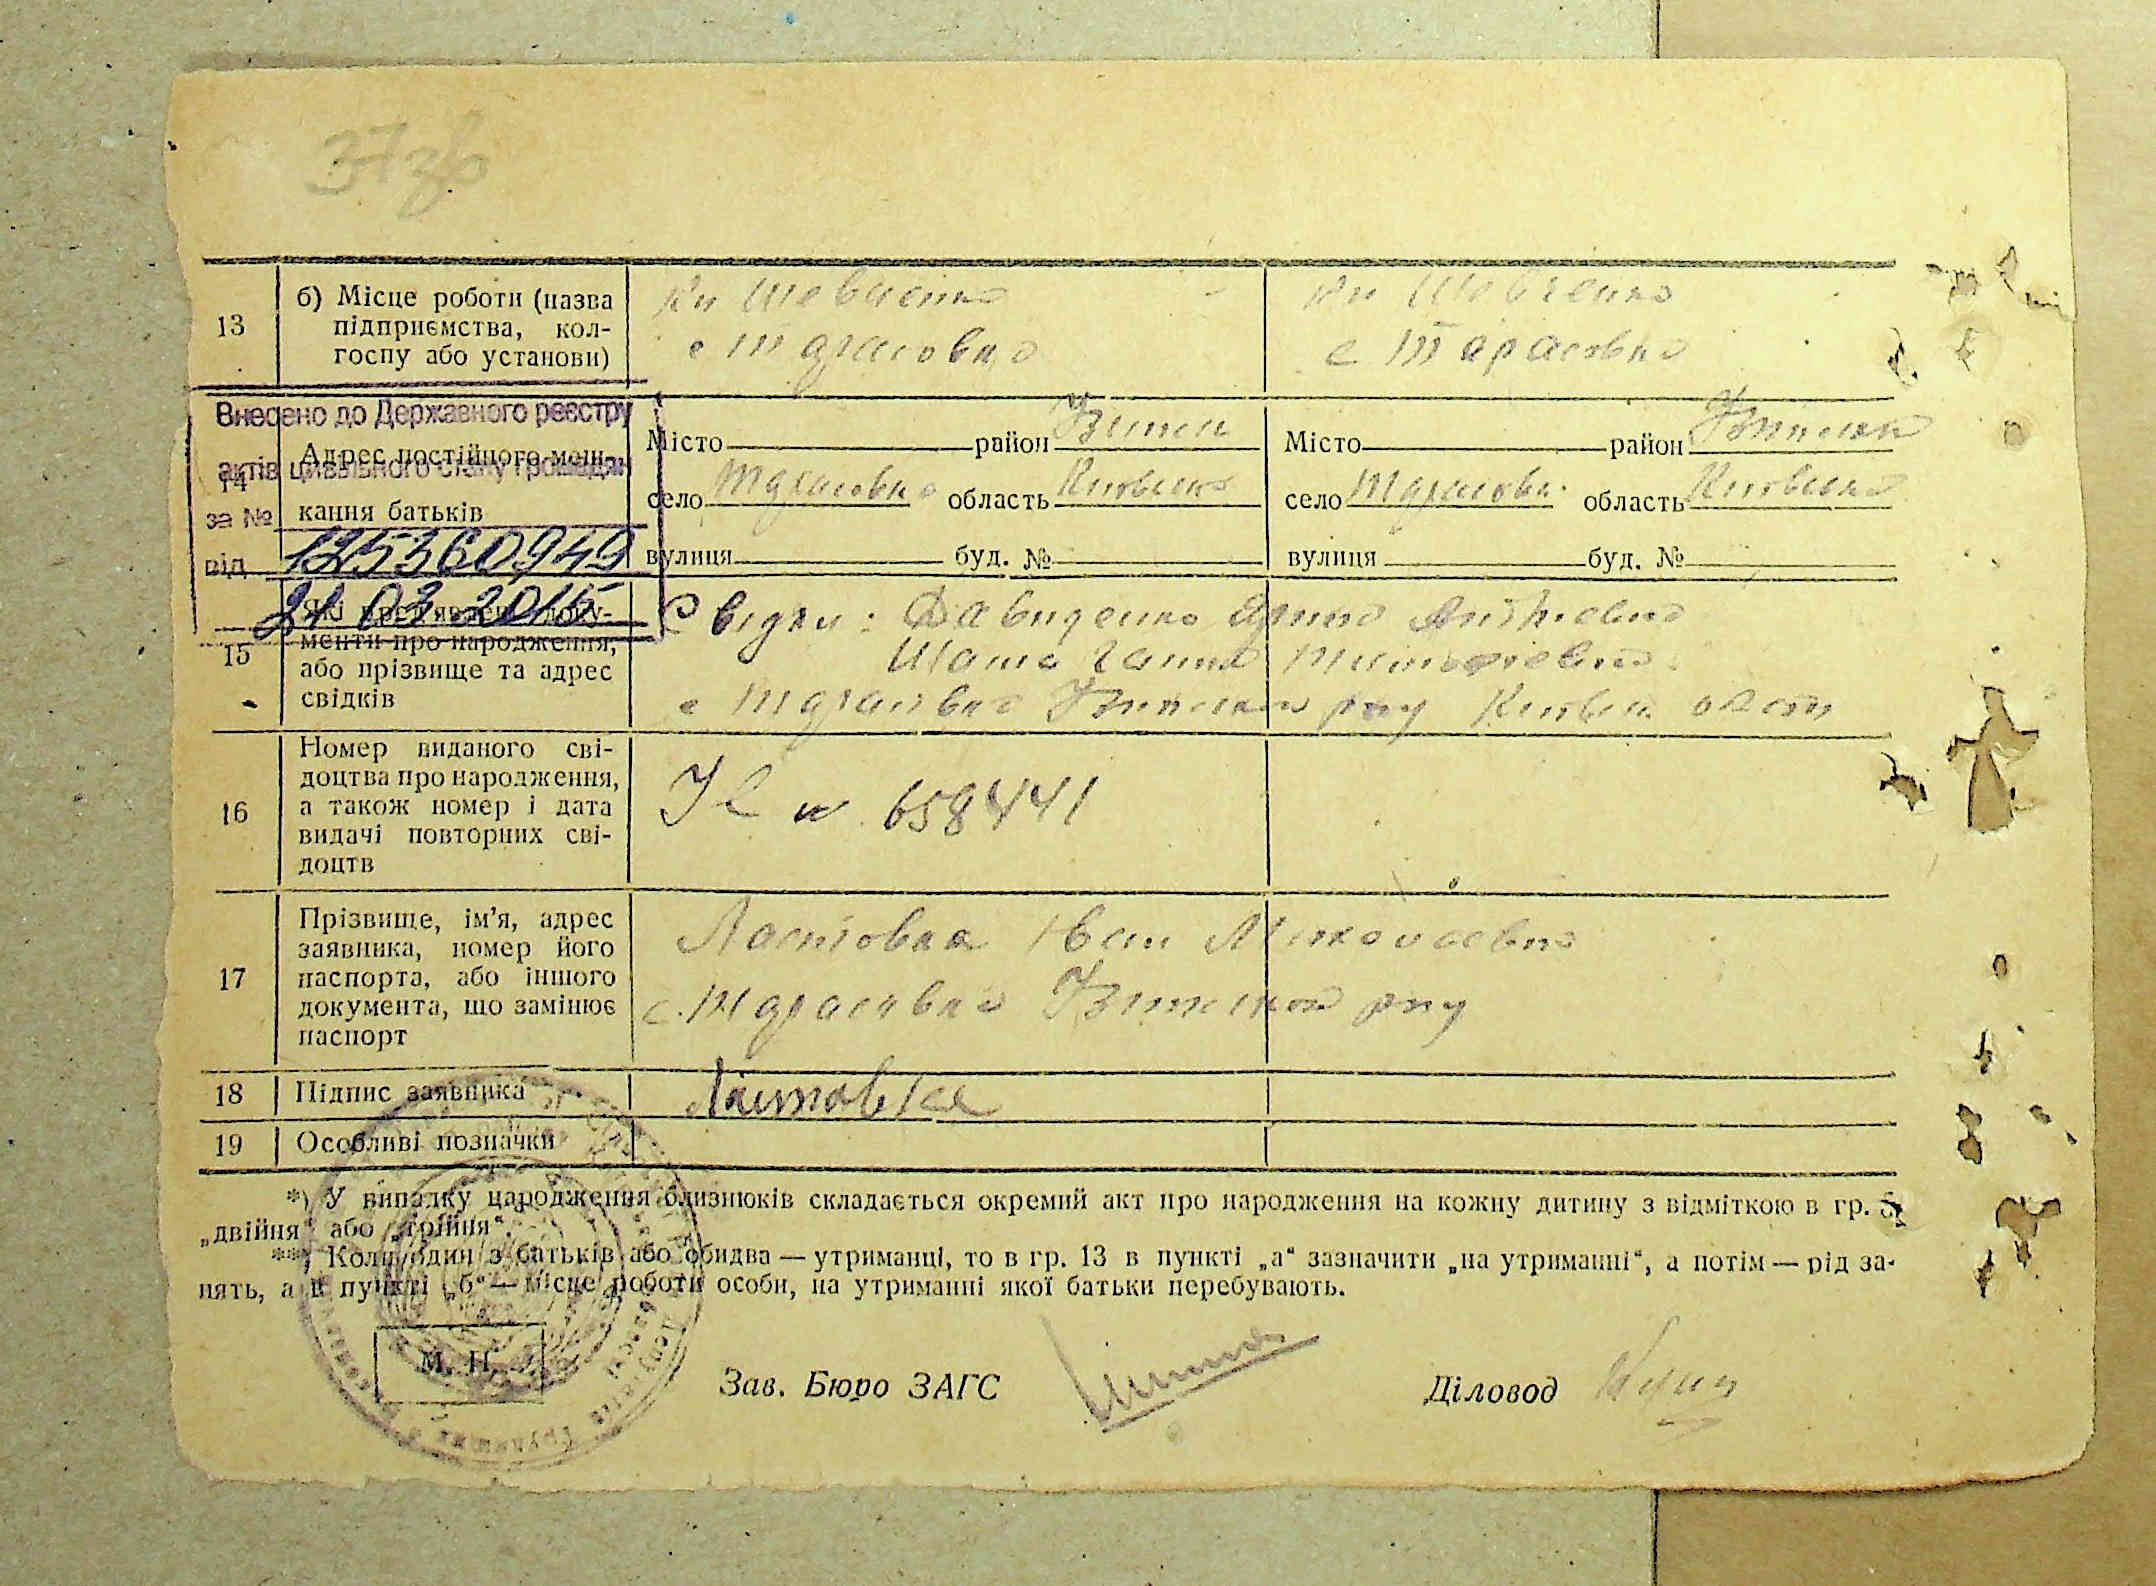 37зв
13
б) Місце роботи (назва
підприємства, кол-
госпу або установи)
Кп Шевченка
с Тарасовка
Кп Шевченка
с Тарасовка
Внесено до Державного реєстру
актів цивільного стану громадян
за №
125360949
від
14
Адрес постійного меш-
кання батьків
Місто район
село Тарасовка область Київська
вулиця буд. №
Місто район
село Тарасовка область Київська
вулиця буд. №
15
Які пред'явлені доку-
менти про народження,
або прізвище та адрес
свідків
Свідки: Давиденко
Ганна
с Тарасовка р-ну Київськ. обл
16
Номер виданого сві-
доцтва про народження,
а також номер і дата
видачі повторних сві-
доцтв
658441
17
Прізвище, ім'я, адрес
заявника, номер його
паспорта, або іншого
документа, що замінює
паспорт
Ластовка
с. Тарасовка р-ну
18
Підпис заявника
Ластовка
19
Особливі позначки
*) У випадку народження близнюків складається окремий акт про народження на кожну дитину з відміткою в гр.
„двійня“ або „трійня“.
**) Коли один з батьків або обидва — утриманці, то в гр. 13 в пункті „а“ зазначити „на утриманні“, а потім — рід за-
нять, а в пункті „б“ — місце роботи особи, на утриманні якої батьки перебувають.
М. П.
Зав. Бюро ЗАГС
Діловод